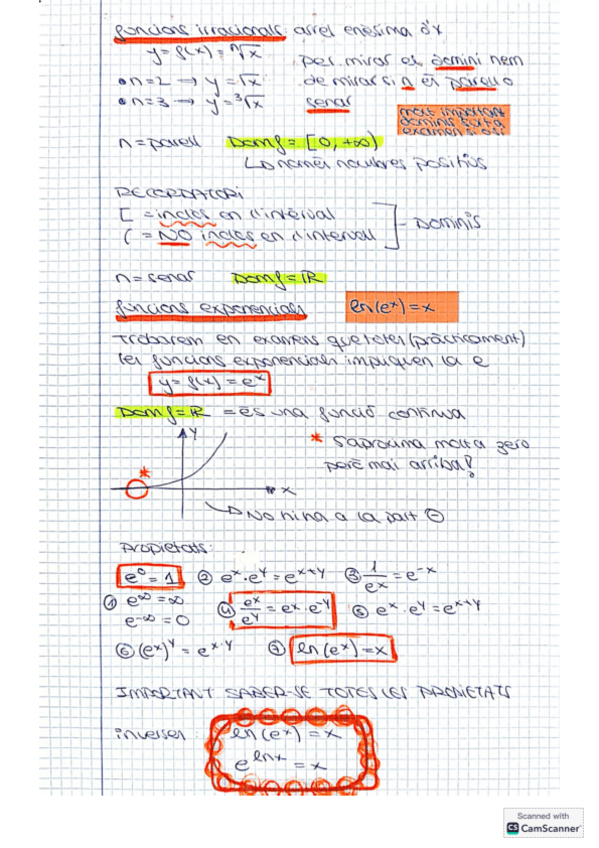 funcions irracionals: arrel enèsima d'x
y = f(x) = ⁿ√x per mirar el domini hem
• n=2 → y = √x de mirar si n és parell o
• n=3 → y = ³√x senar
molt important
dominis surt a
examen sí o sí
n = parell Domf = [0, +∞)
↳ només nombres positius
RECORDATORI
[ = inclòs en l'interval
( = NO inclòs en l'interval
Dominis
n = senar Domf = ℝ
funcions exponencials ln(eˣ) = x
Trobarem en examens que totes (pràcticament)
les funcions exponencials impliquen la e
y = f(x) = eˣ
Domf = ℝ = és una funció contínua
y
* s'aproxima molt a zero
però mai arriba!
*
x
↳ No hi ha a la part ⊖
Propietats:
e⁰ = 1 ② eˣ · eʸ = eˣ⁺ʸ ③ 1/eˣ = e⁻ˣ
① e^∞ = ∞ ④ eˣ/eʸ = eˣ · e⁻ʸ ⑤ eˣ · eʸ = eˣ⁺ʸ
e^-∞ = 0
⑥ (eˣ)ʸ = eˣ·ʸ ⑦ ln(eˣ) = x
IMPORTANT SABER-SE TOTES LES PROPIETATS
inverses: ln(eˣ) = x
e^lnx = x
Scanned with
CS CamScanner